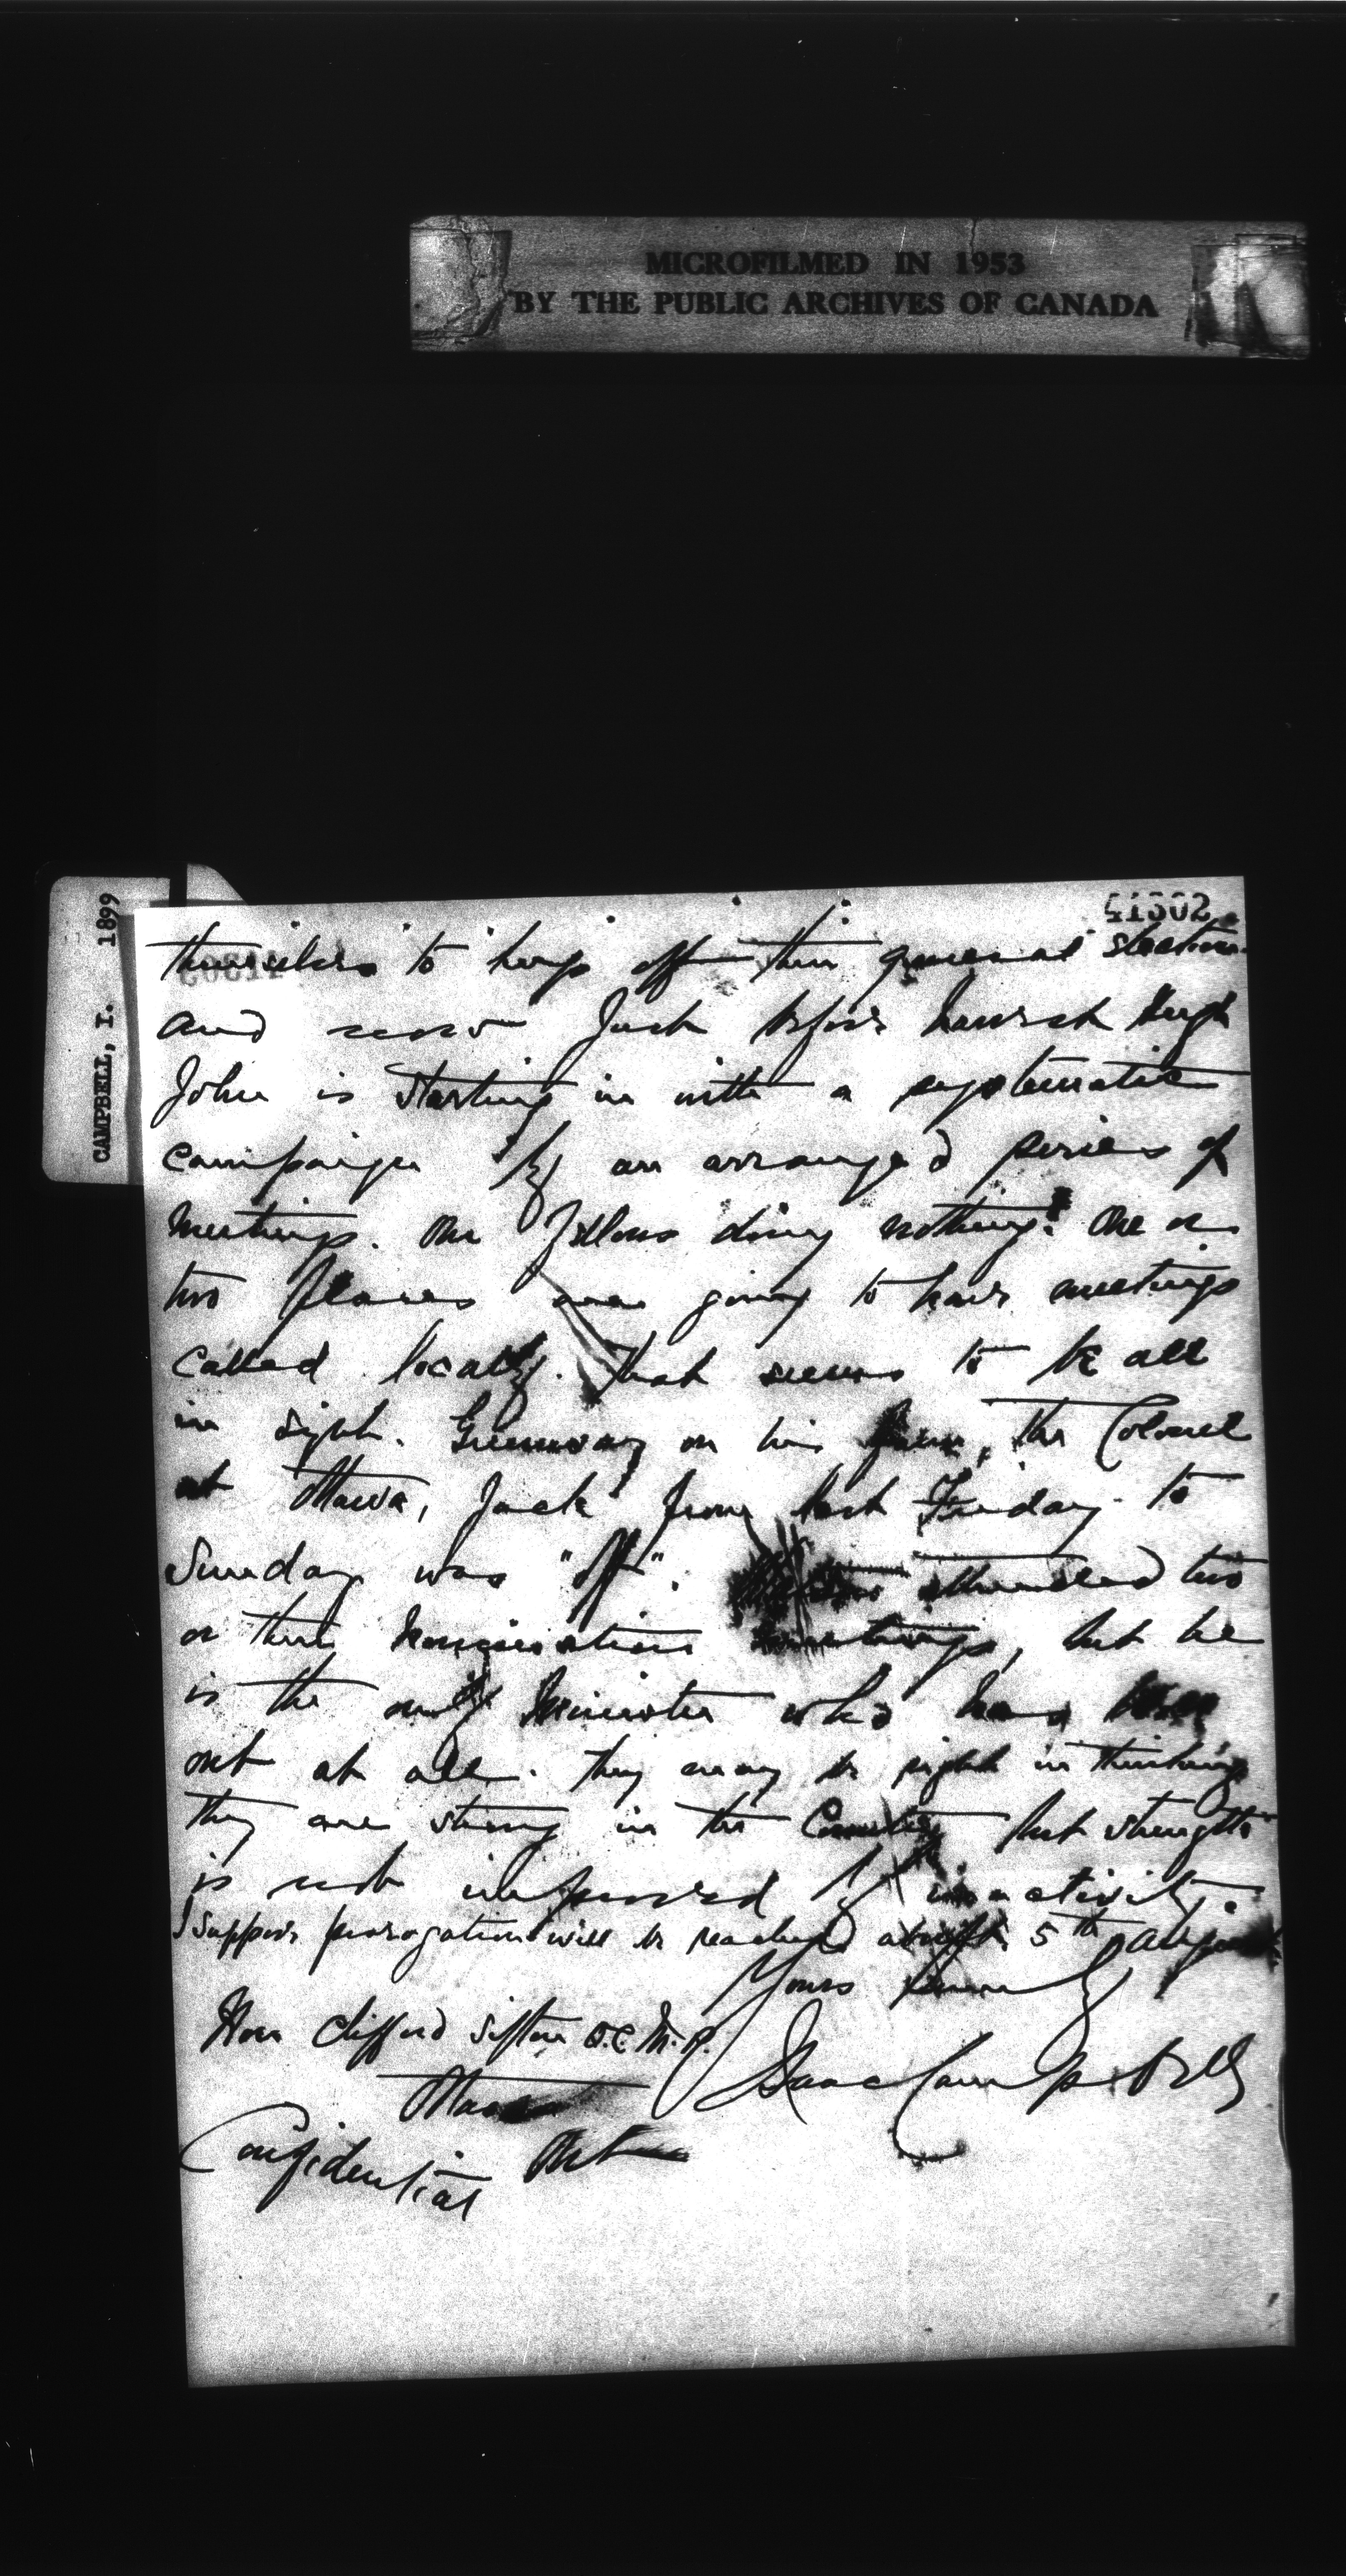 MICROFILMED IN 1953
BY THE PUBLIC ARCHIVES OF CANADA
CAMPBELL, I. 1899
41302
themselves to keep off their general election
and now just before harvest Hugh
John is starting in with a systematic
campaign by an arranged series of
meetings. Our fellows doing nothing. One or
two places are going to have meetings
called locally. That seems to be all
in sight. Greenway on his farm, the Colonel
at Ottawa, Jack from last Friday to
Sunday was "off". attended two
or three nomination meetings, but he
is the only Minister who has been
out at all. They may be right in thinking
they are strong in the Country but strength
is not improved by inactivity.
I suppose prorogation will be reached about 5th
Yours
Hon Clifford Sifton Q.C. M.P.
Isaac Campbell
Ottawa
Ont
Confidential